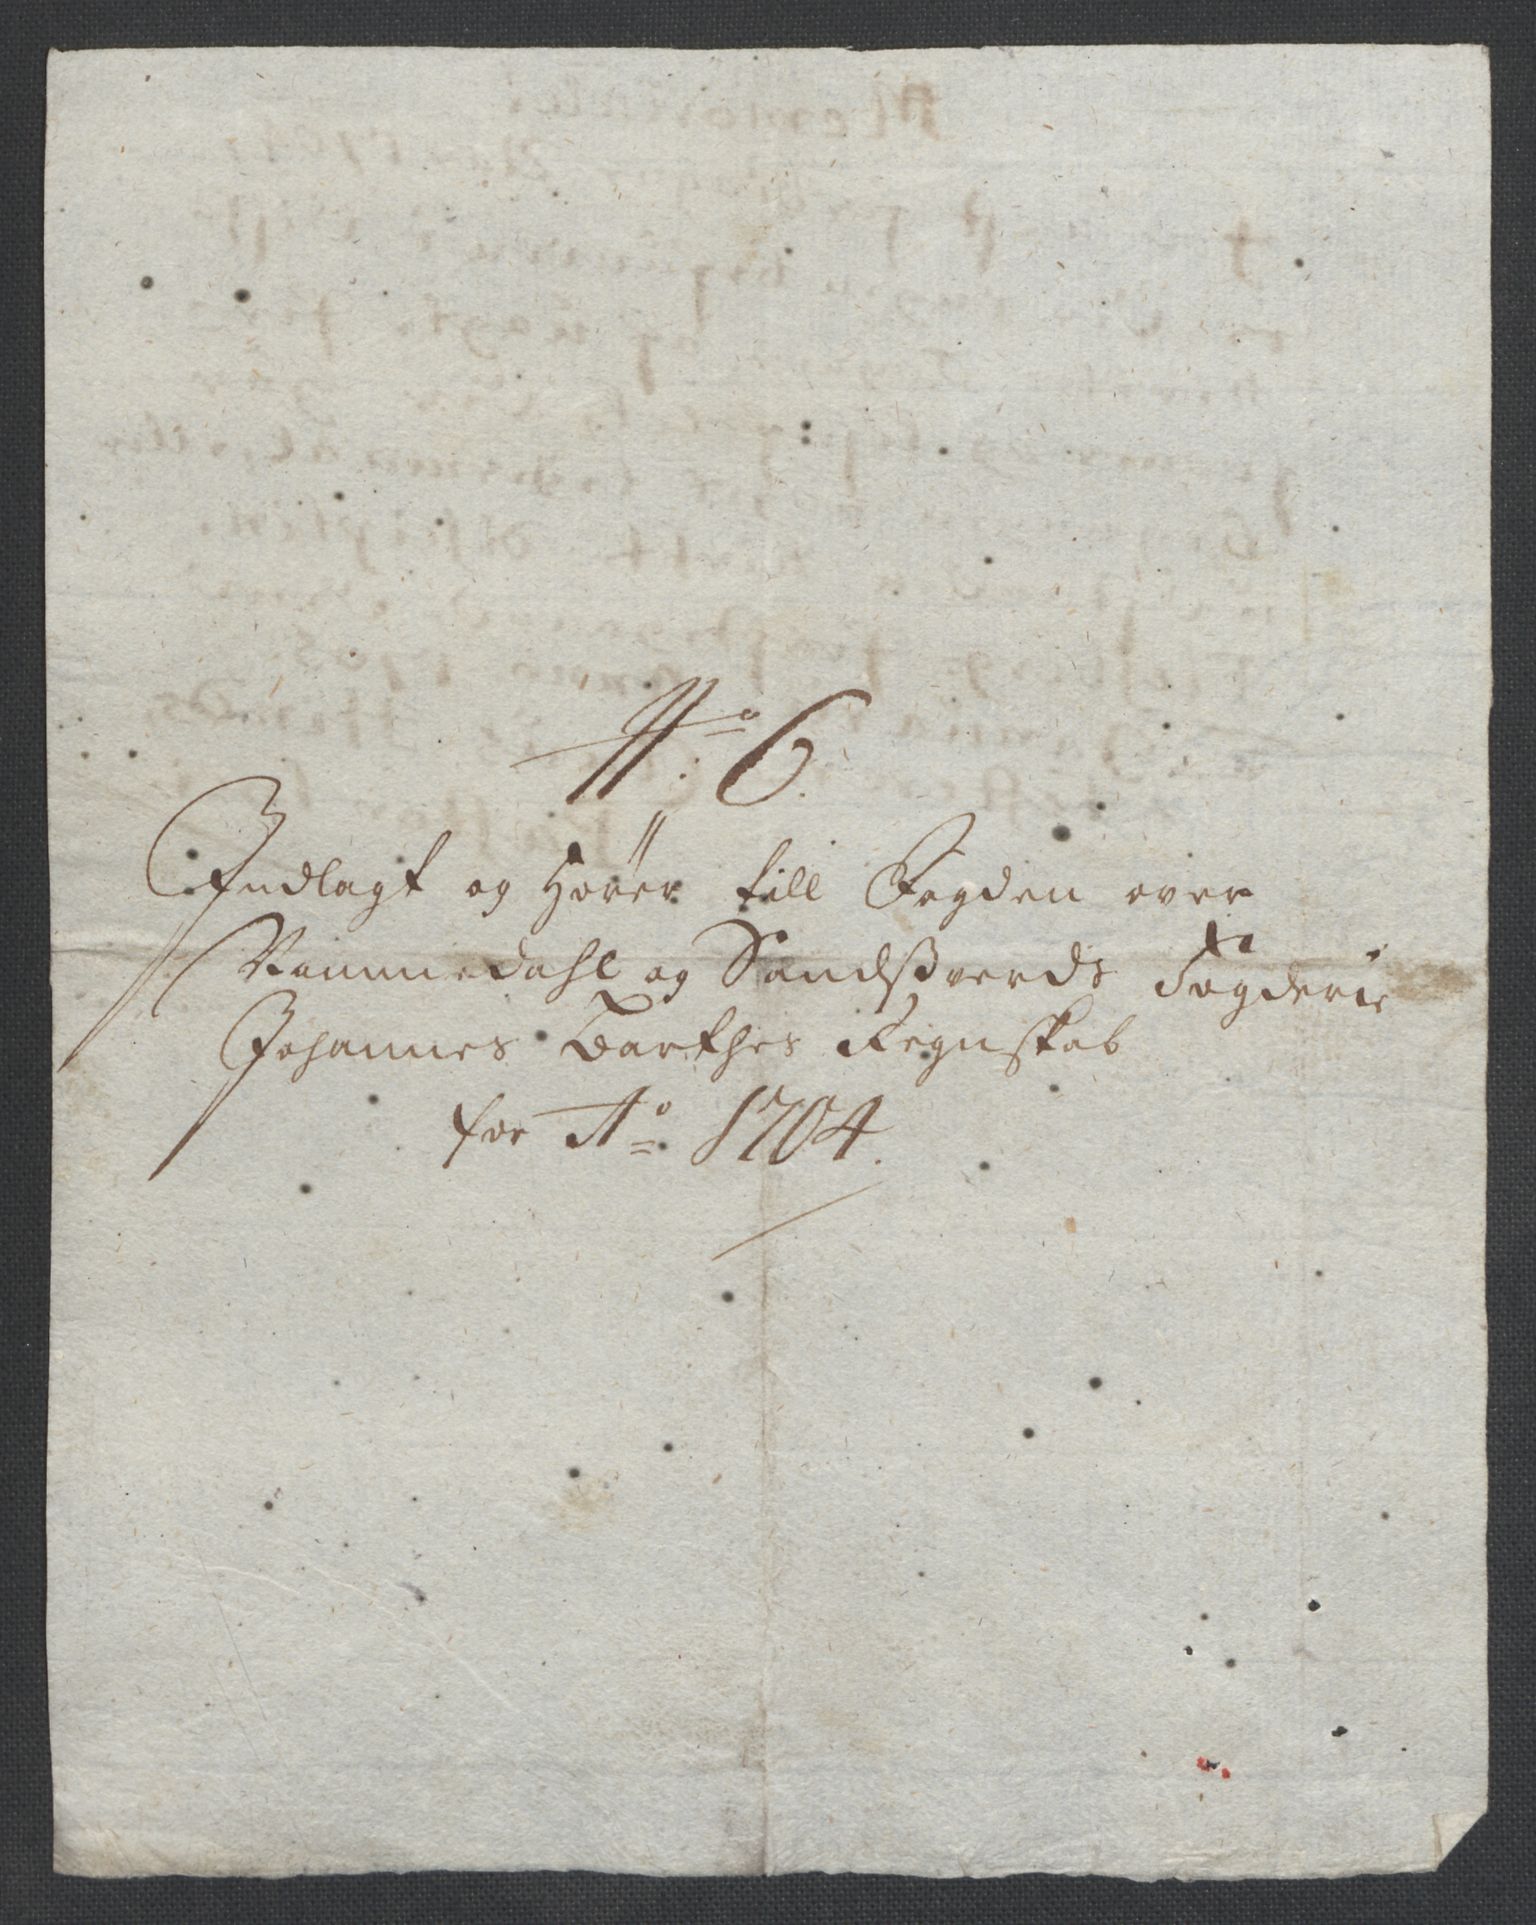 No 6.
Indlagt og Hører till Fogden over
Nummedahl og Sandsværds Fogderie
Johannes Barthes Regnskab
for Ao 1704.